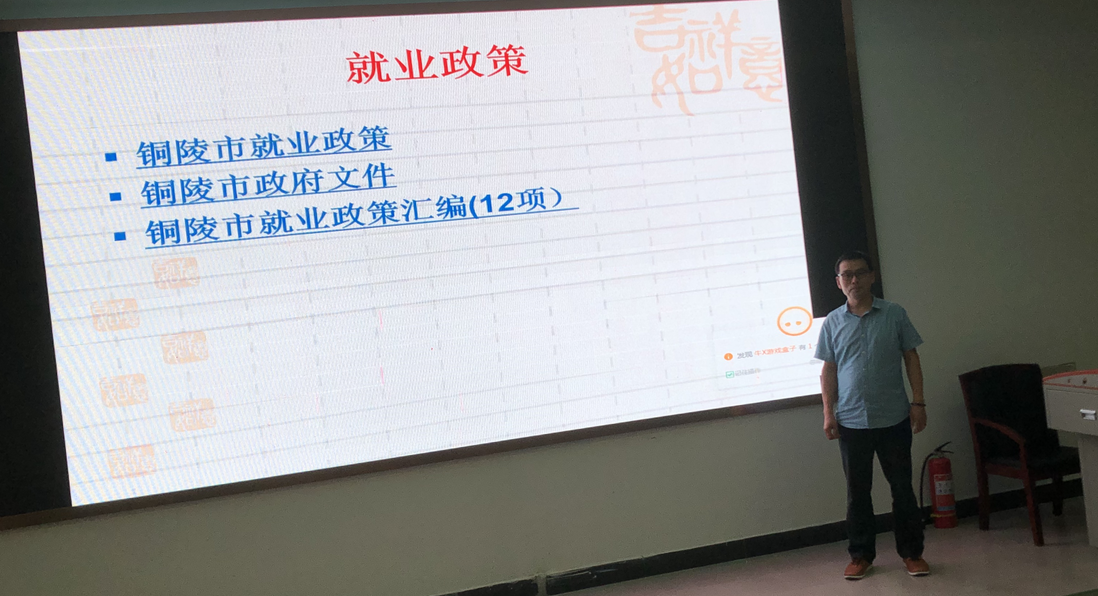 就业政策
铜陵市就业政策
铜陵市政府文件
铜陵市就业政策汇编(12项）